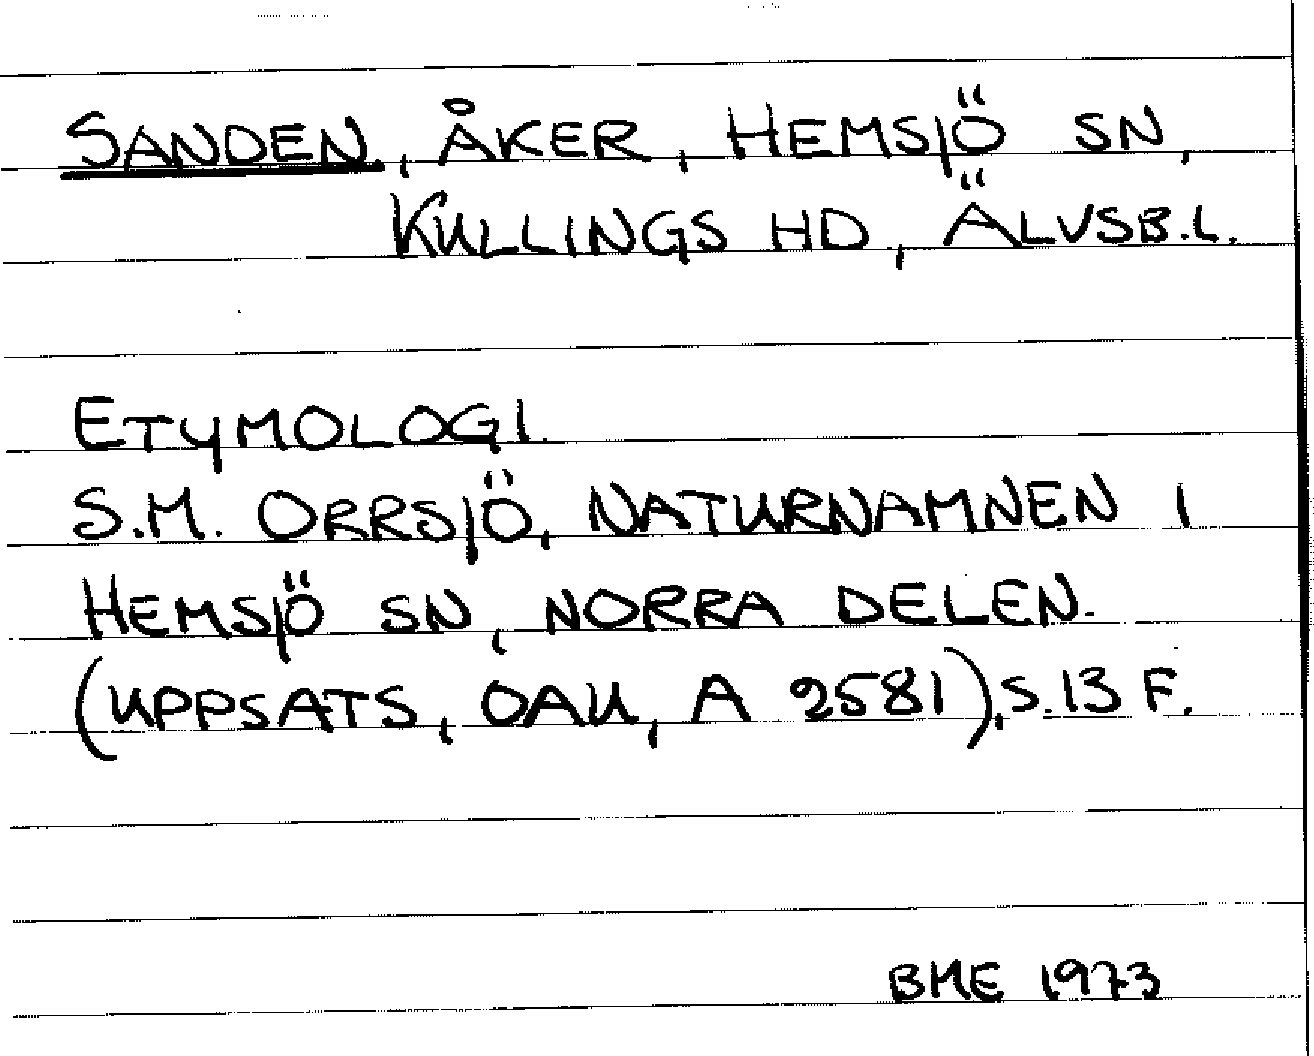 SANDEN, ÅKER, HEMSJÖ SN,
KULLINGS HD, ÄLVSB.L.
ETYMOLOGI.
S.M. ORRSJÖ, NATURNAMNEN I
HEMSJÖ SN, NORRA DELEN.
(UPPSATS, OAU, A 2581), S. 13 F.
BME 1973